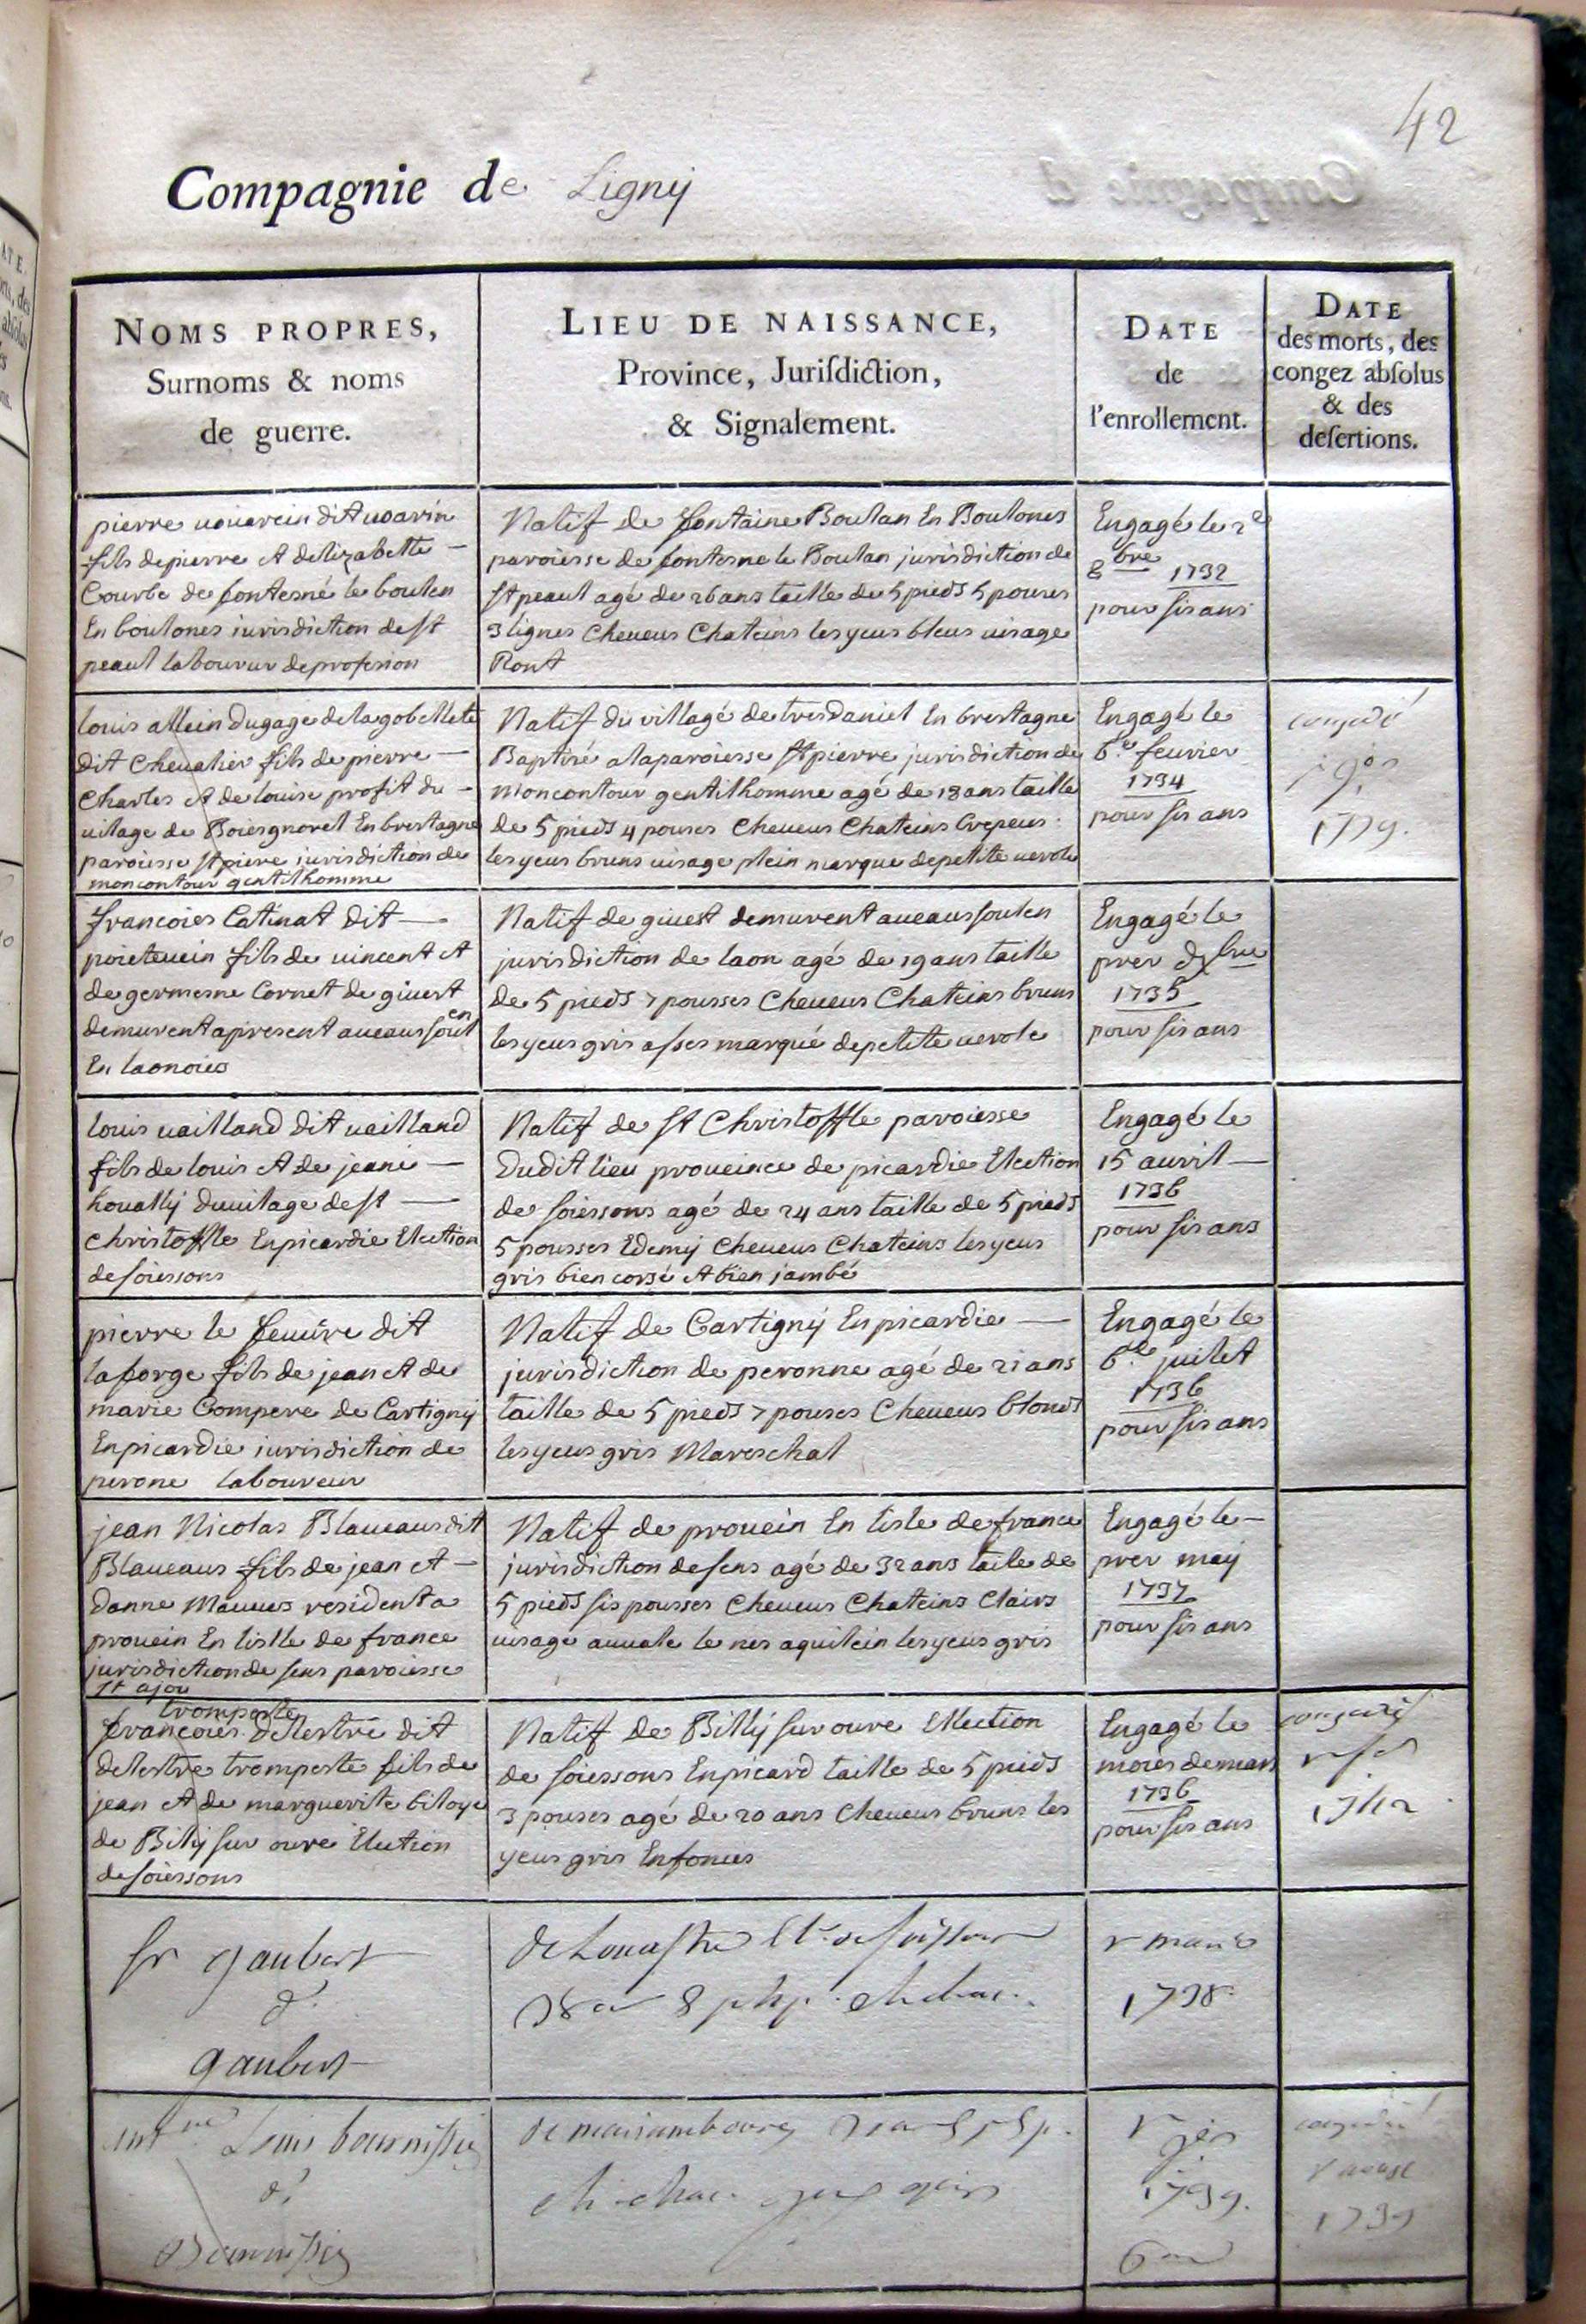 42
Compagnie de Ligny
NOMS PROPRES,
Surnoms & noms
de guerre.
LIEU DE NAISSANCE,
Province, Jurisdiction,
& Signalement.
DATE
de
l'enrollement.
DATE
des morts, des
congez absolus
& des
desertions.
pierre uouarein dit uoarin
fils de pierre et delizabette —
Courbe de fontesné le boulen
En boulones iurisdiction de st
peaul laboureur de profession
Natif de fontaine Boulan En Boulones
paroiesse de fontesne le Boulan jurisdiction de
st peaul agé de 26 ans taille de 5 pieds 5 pouses
3 lignes Cheueus Chateins les yeus bleus uisage
Ront
Engagé le 2e
8bre 1732
pour sis ans
louis allein dugage de la gobellete
dit Cheualier fils de pierre —
Charles et de louise profit du —
uilage de Boiesgnorel En brestagne
paroiesse st piere iurisdiction de
moncontour gentilhomme
Natif du villagé de tresdaniel En brestagne
Baptisé a la paroiesse st pierre jurisdiction de
moncontour gentilhomme agé de 18 ans taille
de 5 pieds 4 pouses Cheueus Chateins Crepeus
les yeus bruns uisage plein marque de petite uerole
Engagé le
6e feurier
1734
pour sis ans
congedié
1739.
francoies Catinat dit —
poieteuein fils de uincent et
de germesne Cornet de giuest
demurent apresent aueaus souten
En laonoies
Natif de giuest demurent aueaus souten
jurisdiction de laon agé de 19 ans taille
de 5 pieds 7 pousses Cheueus Chateins bruns
les yeus gris asses marqué de petite uerole
Engagé le
prer Xbre
1735
pour sis ans
louis uailland dit uailland
fils de louis et de jeane —
houally du uilage de st —
christoffle En picardie Election
de soiessons
Natif de st Christoffle paroiesse
Dudit lieu proueince de picardie Election
de soiessons agé de 24 ans taille de 5 pieds
5 pousses Edemy Cheueus Chateins les yeus
gris bien corsé et bien jambé
Engagé le
15 auril —
1736
pour sis ans
pierre le feuure dit
laforge fils de jean et de
marie Compere de Cartigny
En picardie iurisdiction de
perone laboureur
Natif de Cartigny En picardie —
jurisdiction de peronne agé de 21 ans
taille de 5 pieds 7 pouses Cheueus blonds
les yeus gris Mareschal
Engagé le
6e juilet
1736
pour sis ans
jean Nicolas Blaueaus dit
Blaueaus fils de jean et —
danne Mauues resident a
prouein En lislle de france
jurisdiction de sens paroiesse
st ajou
Natif de prouein En lisle de france
jurisdiction de sens agé de 32 ans taile de
5 pieds sis pousses Cheueus Chateins Clairs
uisage auuale le nes aquilein les yeus gris
Engagé le —
prer may
1737
pour sis ans
trompeste
francoies delestre dit
delestre trompeste fils de
jean et de marguerite biloye
de Billy sur ourе Election
de soiessons
Natif de Billy sur oure Election
de soiessons En picard taille de 5 pieds
3 pouses agé de 20 ans Cheueus bruns les
yeus gris Enfonces
Engagé le
moies de mars
1736
pour sis ans
congedié
1742
fr gaubert
d.
gaubert
1738
Louis
d.
ch. chac. yeux gris
1739.
6 ans
congedié
1739